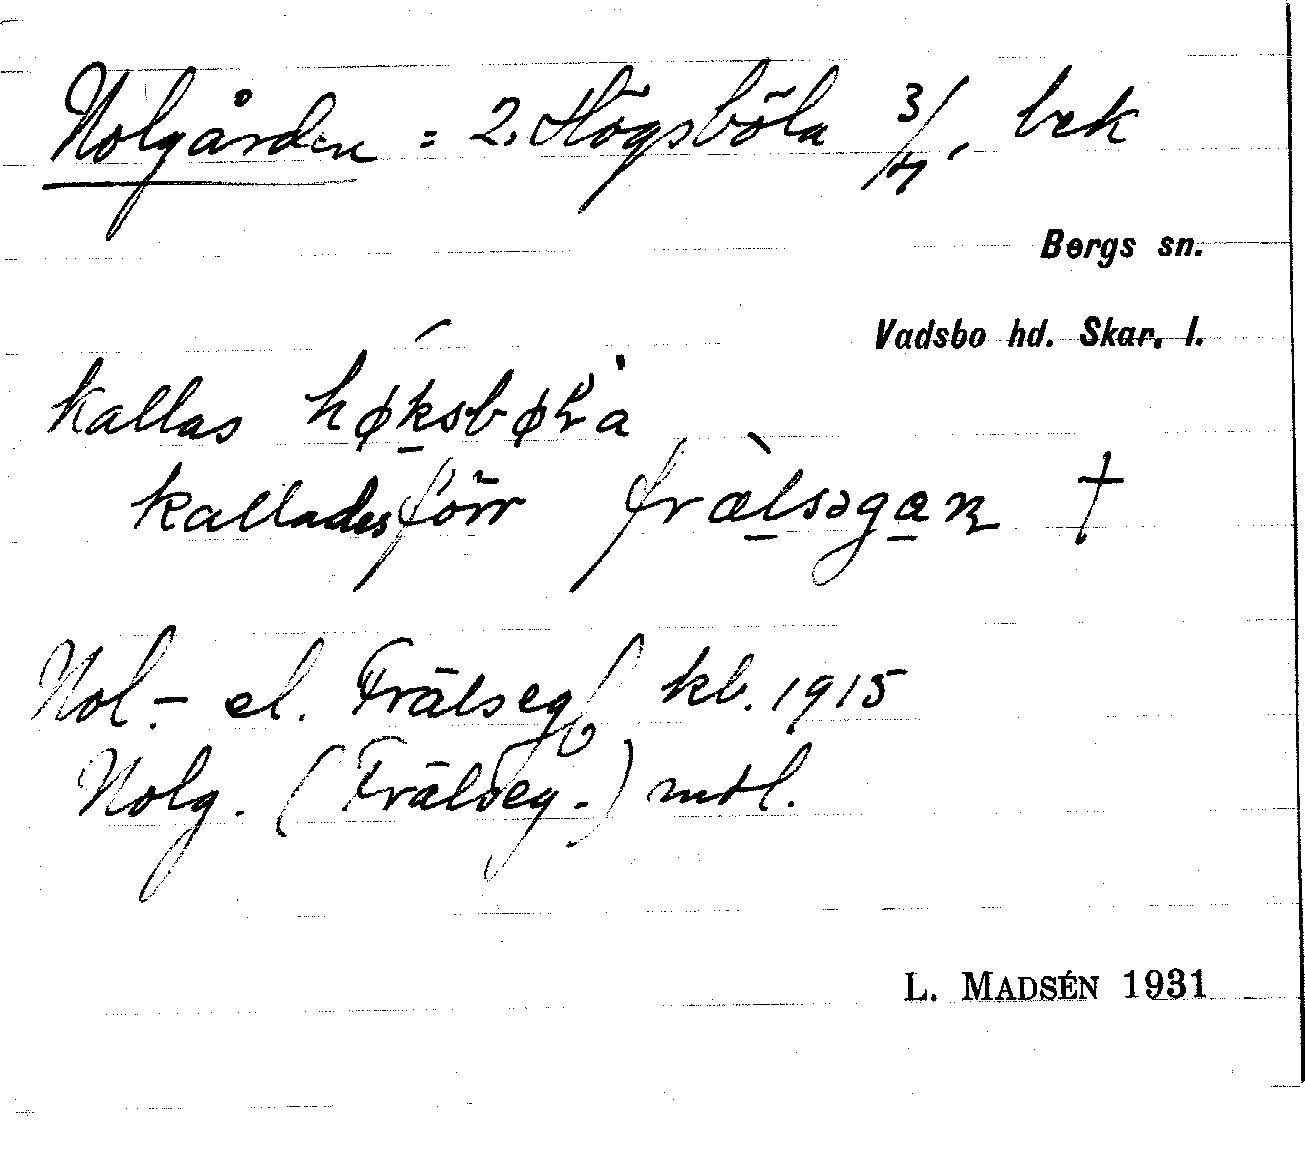 Nolgården = 2. Högsböla 3/4, bek
Bergs sn.
Vadsbo hd. Skar. l.
kallas høksbøɽa
kallades förr frælsəgaɳ †
Nol- el. Frälseg kb. 1915
Nolg. (Frälseg.) mtl.
L. MADSÉN 1931